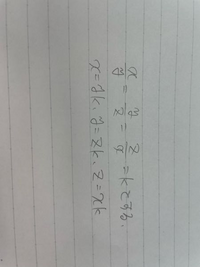 x/y = y/z = z/x = kとする.
x=yk, y=zk, z=xk